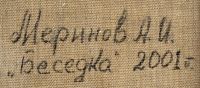 Меринов А.И.
„Беседка" 2001г.